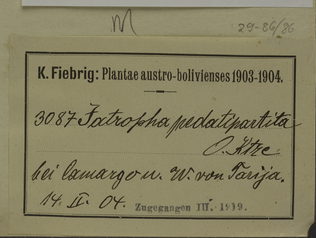 M 29-86/86
K. Fiebrig: Plantae austro-bolivienses 1903-1904.
3087 Jatropha pedatipartita
O. Ktze
bei Camargo u. W. von Tarija.
14. II. 04. Zugegangen III. 1919.